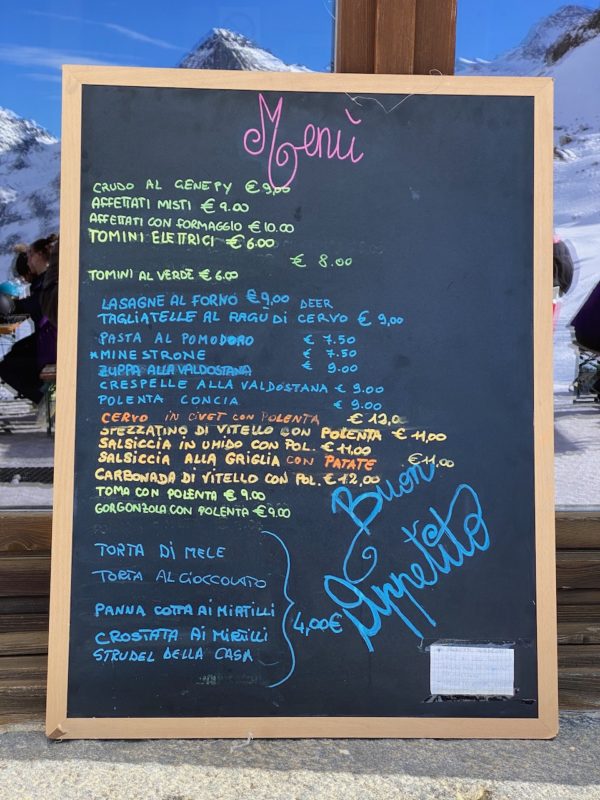 Menù
CRUDO AL GENEPY € 9,00
AFFETTATI MISTI € 9.00
AFFETTATI CON FORMAGGIO € 10.00
TOMINI ELETTRICI € 6.00
€ 8.00
TOMINI AL VERDE € 6.00
LASAGNE AL FORNO € 9,00 DEER
TAGLIATELLE AL RAGÙ DI CERVO € 9,00
PASTA AL POMODORO € 7.50
*MINESTRONE € 7.50
ZUPPA ALLA VALDOSTANA € 9.00
CRESPELLE ALLA VALDOSTANA € 9.00
POLENTA CONCIA € 9.00
CERVO IN CIVET CON POLENTA € 12,0
SPEZZATINO DI VITELLO CON POLENTA € 11,00
SALSICCIA IN UMIDO CON POL. € 11,00
SALSICCIA ALLA GRIGLIA CON PATATE € 11,00
CARBONADA DI VITELLO CON POL. € 12,00
TOMA CON POLENTA € 9.00
GORGONZOLA CON POLENTA € 9.00
TORTA DI MELE
TORTA AL CIOCCOLATO
PANNA COTTA AI MIRTILLI
CROSTATA AI MIRTILLI
STRUDEL DELLA CASA
4,00€
Buon
Appetito